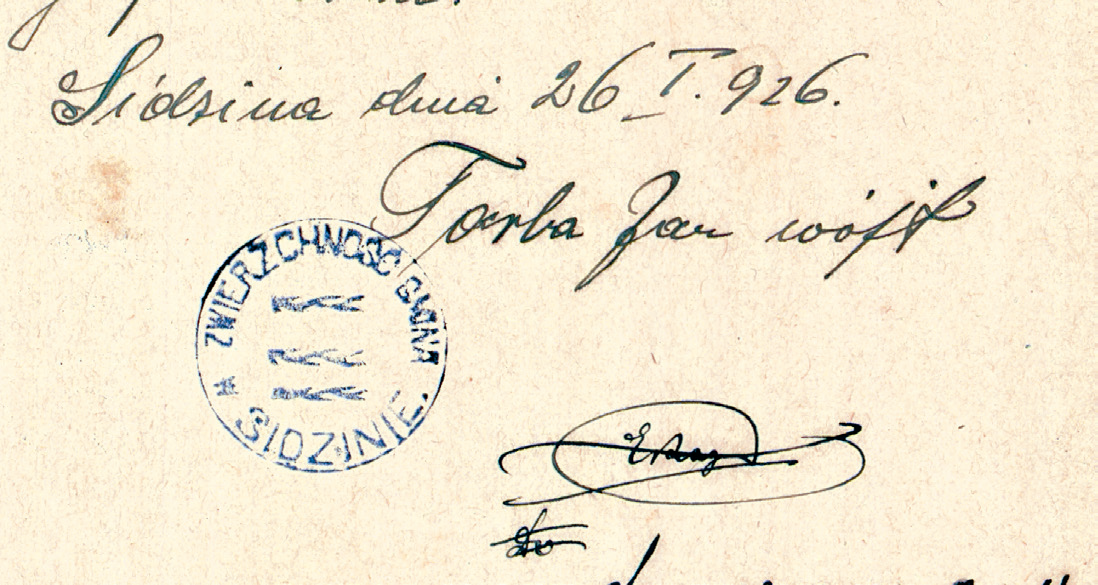 Sidzina dnia 26 I. 926.
Torba Jan wójt
ZWIERZCHNOŚĆ GMINA
W SIDZINIE.